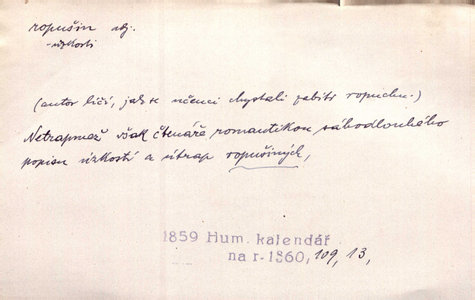 ropušin adj.
-úzkosti
(autor líčí, jak se učenci chystali zabíti ropuchu.)
Netrapmež však čtenáře romantikou sáhodlouhého
popisu úzkostí a útrap ropušiných,
1859 Hum. kalendář
na r. 1860, 109, 13,